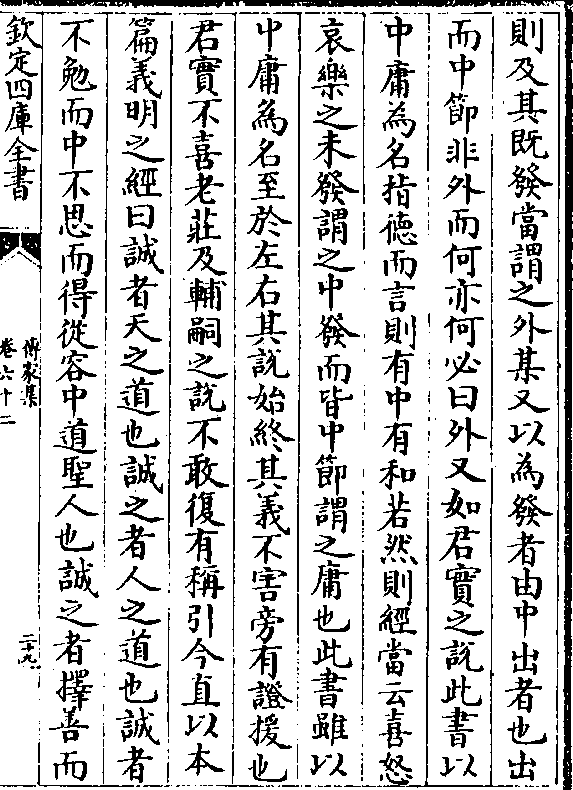 則及其既發當謂之外某又以為發者由中出者也出
而中節非外而何亦何必曰外又如君實之説此書以
中庸為名指徳而言則有中有和若然則經當云喜怒
哀樂之未發謂之中發而皆中節謂之庸也此書雖以
中庸為名至於左右其説始終其義不害旁有證援也
君實不喜老莊及輔嗣之説不敢復有稱引今直以本
篇義明之經曰誠者天之道也誠之者人之道也誠者
不勉而中不思而得從容中道聖人也誠之者擇善而
欽定四庫全書
傳家集
卷六十二
二十九